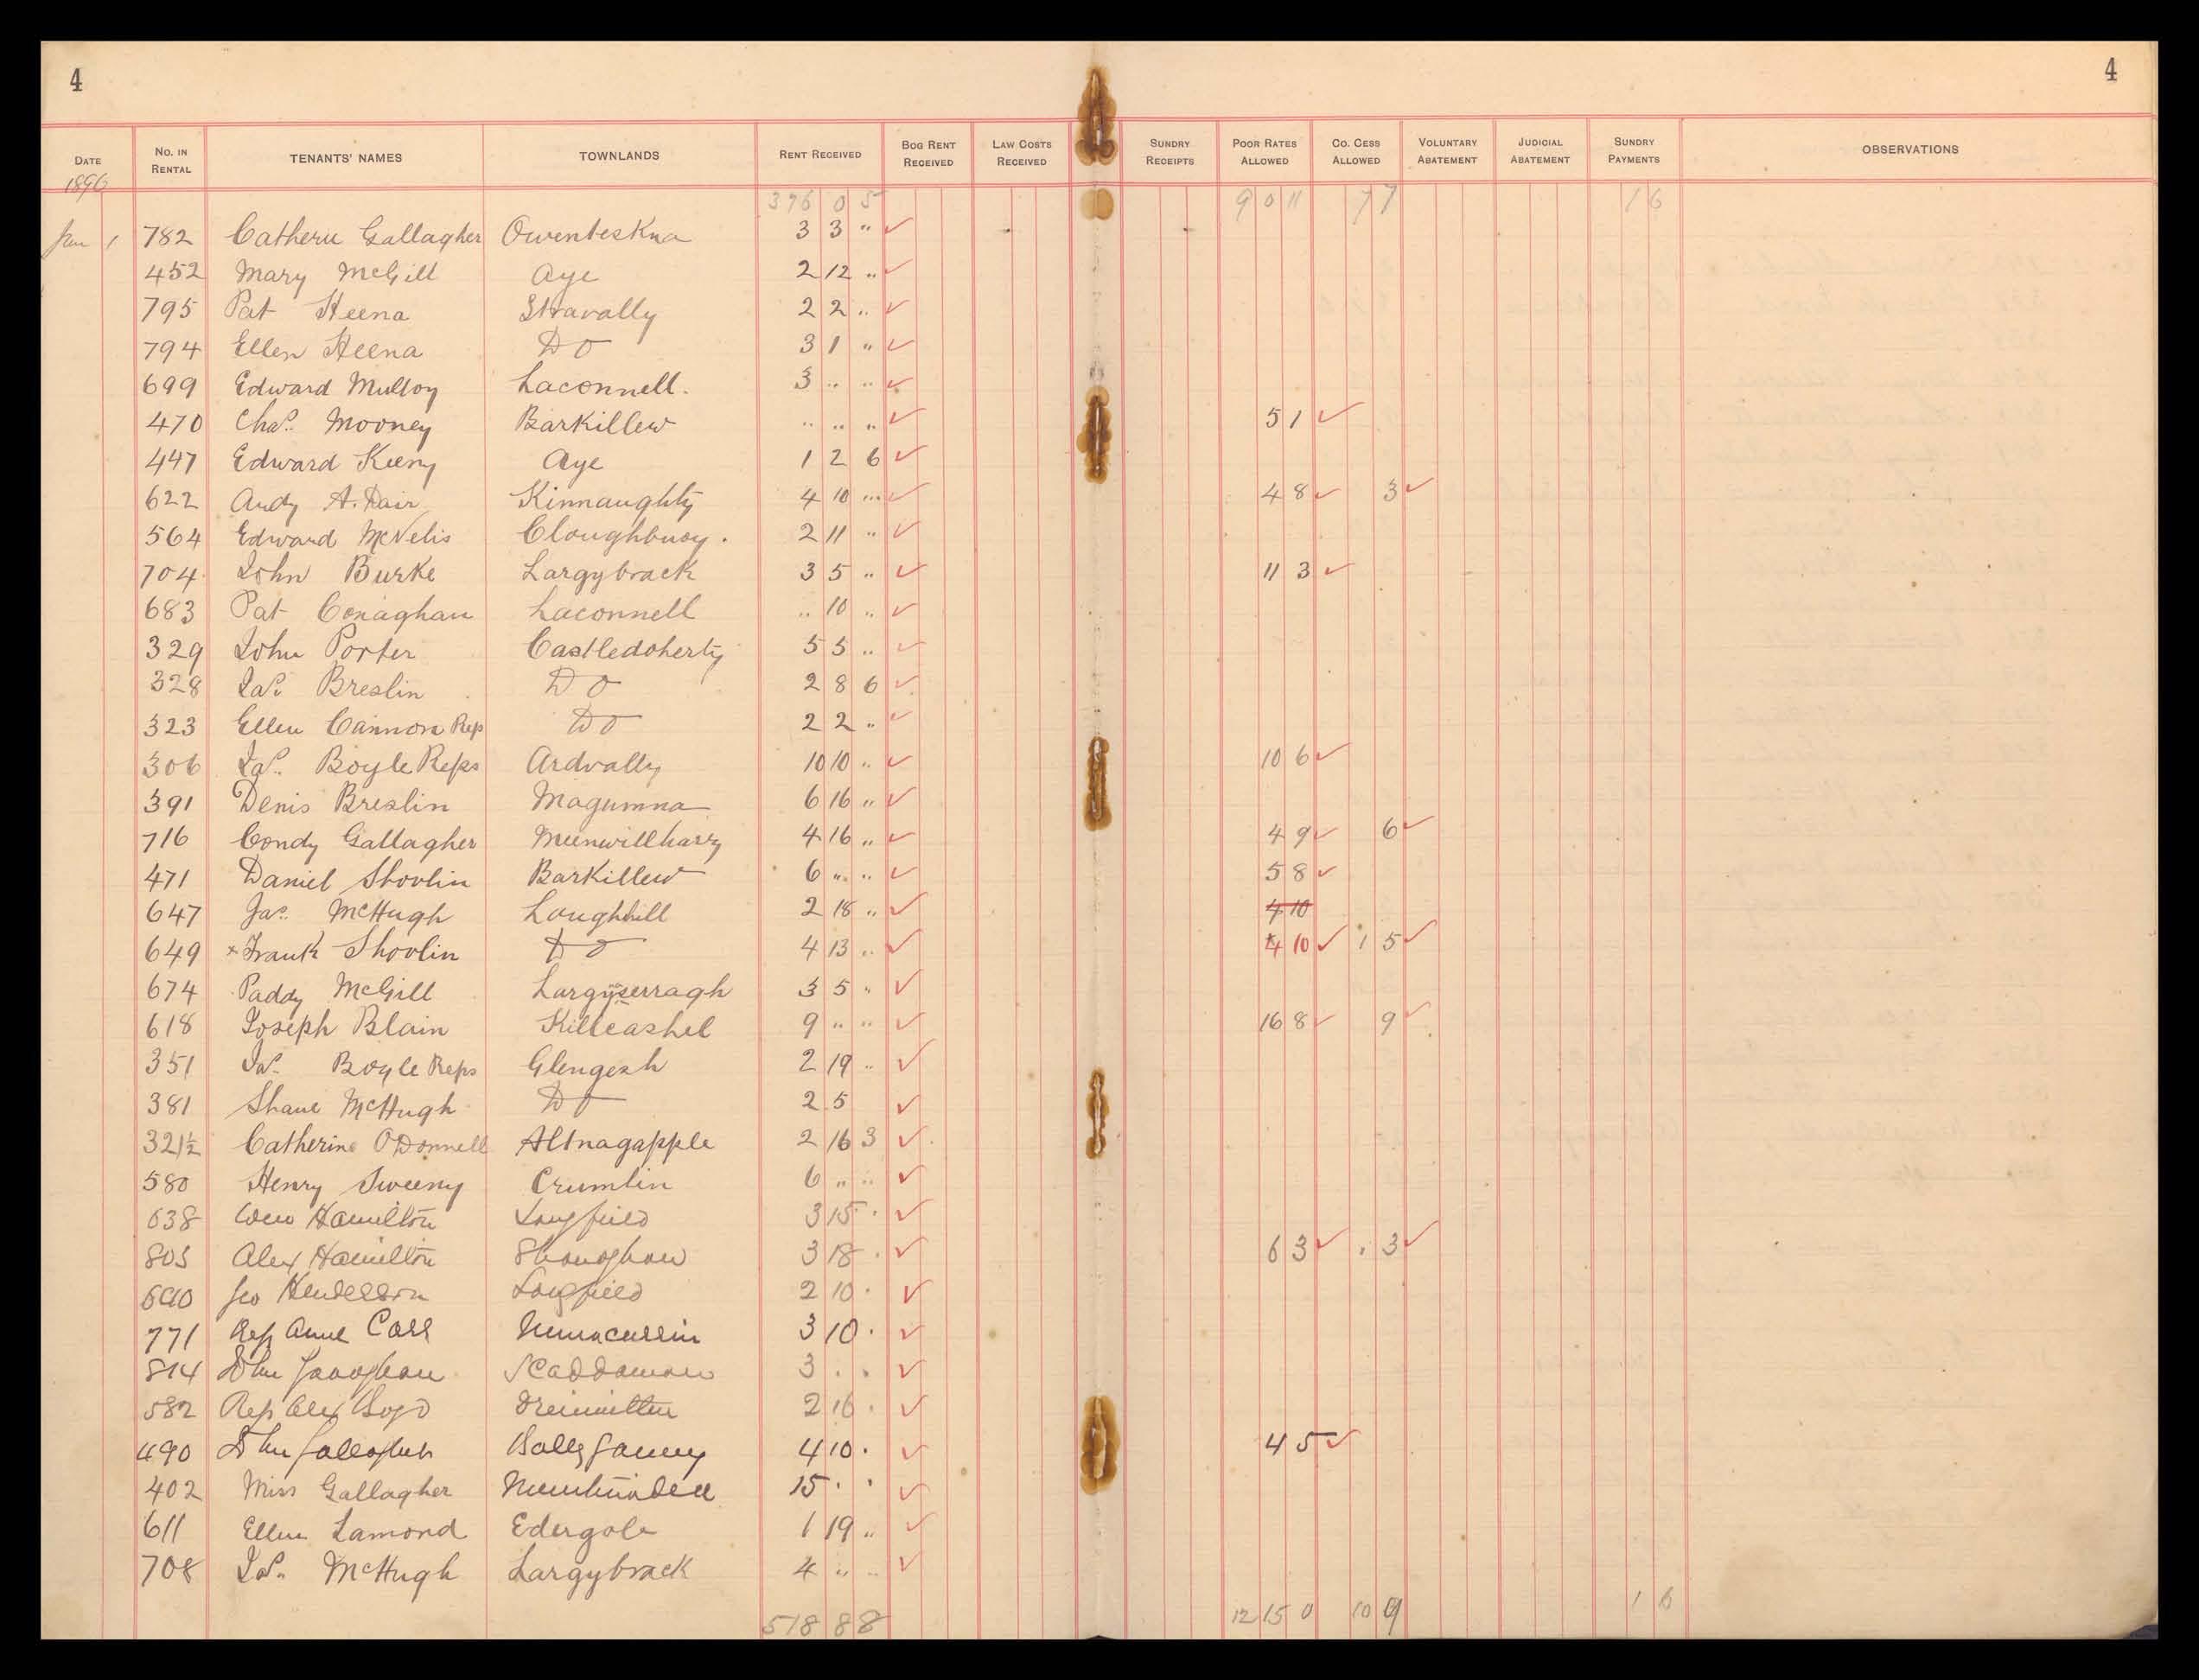 4 4
DATE No. IN RENTAL TENANTS' NAMES TOWNLANDS RENT RECEIVED BOG RENT RECEIVED LAW COSTS RECEIVED SUNDRY RECEIPTS POOR RATES ALLOWED CO. CESS ALLOWED VOLUNTARY ABATEMENT JUDICIAL ABATEMENT SUNDRY PAYMENTS OBSERVATIONS
1896
376 0 5 9 0 11 7 7 1 6
Jan 1 782 Catherie Gallagher Owenteskna 3 3 " ✓
452 Mary McGill Aye 2 12 " ✓
795 Pat Heena Stravally 2 2 " ✓
794 Ellen Heena Do 3 1 " ✓
699 Edward Mulloy Laconnell. 3 " " ✓
470 Chas. Mooney Barkillew " " " ✓ 5 1 ✓
447 Edward Keeny Aye 1 2 6 ✓
622 Andy A. Dair Kinnaughty 4 10 " ✓ 4 8 ✓ 3 ✓
564 Edward McNelis Cloughbuoy. 2 11 " ✓
704 John Burke Largybrack 3 5 " ✓ 11 3 ✓
683 Pat Conaghan Laconnell " 10 " ✓
329 John Porter Castledoherty 5 5 " ✓
328 Jas. Breslin Do 2 8 6 ✓
323 Ellen Cannon Rep Do 2 2 " ✓
306 Jas. Boyle Reps Ardvally 10 10 " ✓ 10 6 ✓
391 Denis Breslin Magumna 6 16 " ✓
716 Condy Gallagher Meenwillharry 4 16 " ✓ 4 9 ✓ 6 ✓
471 Daniel Shovlin Barkillew 6 " " ✓ 5 8 ✓
647 Jas. McHugh Loughhill 2 18 " ✓ 4 10
649 × Frank Shovlin Do 4 13 " ✓ 4 10 ✓ 1 5 ✓
674 Paddy McGill Largyserragh 3 5 " ✓
618 Joseph Blain Killcashel 9 " " ✓ 16 8 ✓ 9 ✓
351 Jas. Boyle Reps Glengesh 2 19 " ✓
381 Shane McHugh Do 2 5 ✓
321½ Catherine O'Donnell Altnagapple 2 16 3 ✓
580 Henry Sweeny Crumlin 6 " " ✓
638 Wm Hamilton Longfield 3 15 . ✓
803 Alex Hamilton 3 18 . ✓ 6 3 ✓ . 3 ✓
690 Geo Henderson Longfield 2 10 . ✓
771 Rep Anne Carr Meenacurrin 3 10 . ✓
814 John Scaddaman 3 . . ✓
582 Rep Alex Boyd 2 16 . ✓
490 John Gallagher Ballyganny 4 10 . ✓ 4 5 ✓
402 Miss Gallagher 15 . . ✓
611 Ellen Lamond Edergole 1 19 " ✓
708 Jas. McHugh Largybrack 4 " " ✓
518 8 8 12 15 0 10 9 1 6